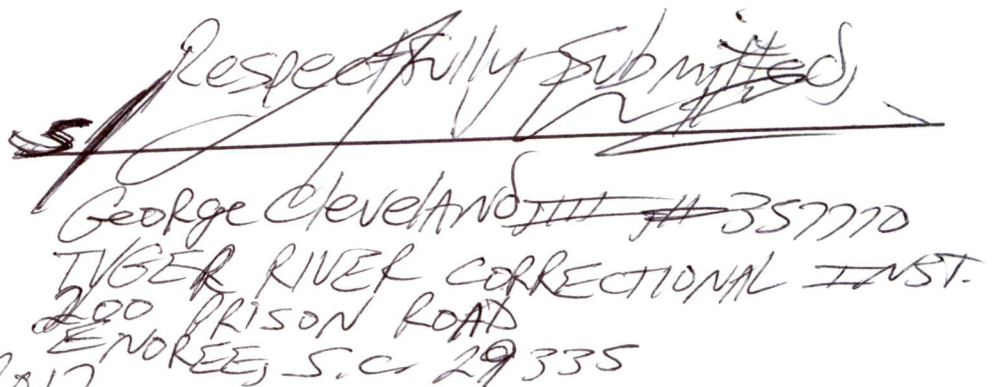 Respectfully Submitted,
S/
George Cleveland III #357770
TYGER RIVER CORRECTIONAL INST.
200 PRISON ROAD
ENOREE, S.C. 29335